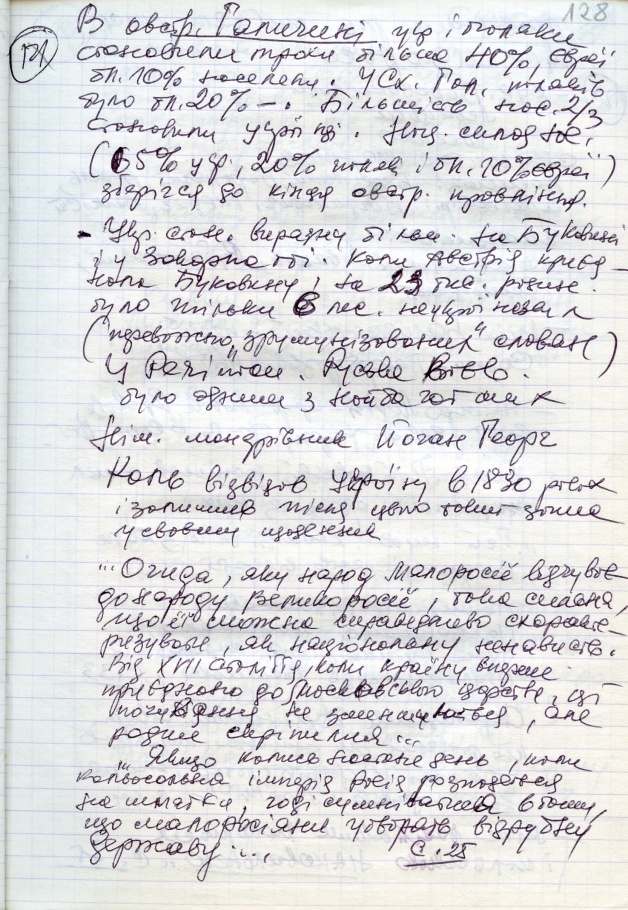 128
В австр. Галичині укр і поляки
становили трохи більше 40%, євреї
бл. 10% населен. У Сх. Гал. поляків
було бл. 20% –. Більшість нас. 2/3
становили українці. Нац. склад
(65% укр., 20% поляк і бл. 10% євреї)
зберігся до кінця австр. правління.
- Укр. стан. виразну більш. на Буковині
і у Закарпатті. Коли Австрія приєд-
нала Буковину, на 23 тис.
було тільки 6 тис. неукраїнська
(переважно „зрумунізованих" словян)
У
було одним з найбагатших
Нім. мандрівник Йоган Георг
Коль відвідав Україну в 1830 роках
і залишив після цього
у своєму щоденнику
"...Огида, яку народ Малоросії відчуває
до народу Великоросії, така сильна,
що її можна справедливо охаракте-
ризувати, як національну ненависть.
Від XVII століття, коли країну
приєднано до Московського царства, ці
почування не зменшуються, але
радше скріпилися...
„ Якщо колись настане день, коли
колосальна імперія Росія розпадеться
на шматки, годі сумніватися в тому,
що малоросіяни утворять відрубну
державу...." С. 25